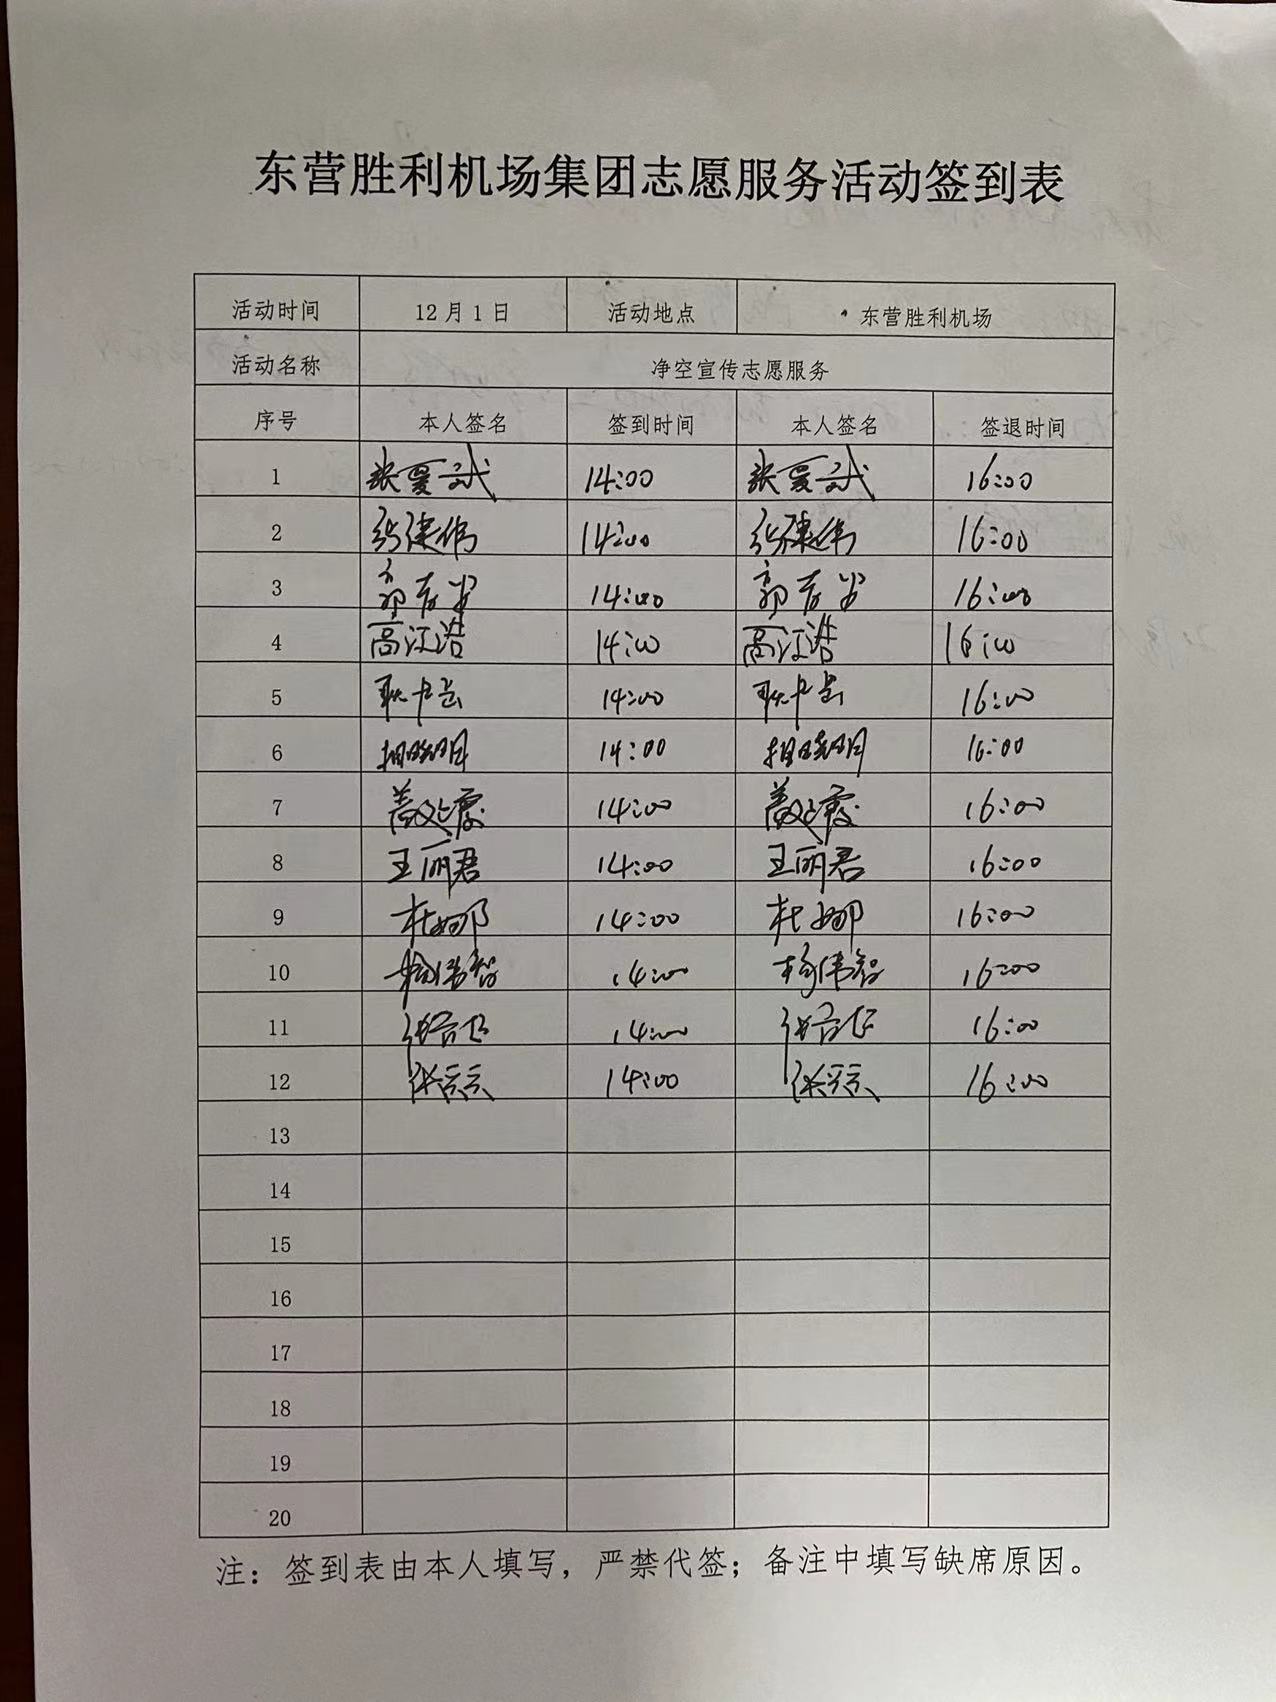 东营胜利机场集团志愿服务活动签到表
活动时间 12月1日 活动地点 东营胜利机场
活动名称 净空宣传志愿服务
序号 本人签名 签到时间 本人签名 签退时间
1 14:00 16:00
2 张建伟 14:00 张建伟 16:00
3 14:00 16:00
4 高江浩 14:00 高江浩 16:00
5 14:00 16:00
6 相晓明 14:00 相晓明 16:00
7 14:00 16:00
8 王丽君 14:00 王丽君 16:00
9 杜娜 14:00 杜娜 16:00
10 杨伟智 14:00 杨伟智 16:00
11 14:00 16:00
12 14:00 16:00
13
14
15
16
17
18
19
20
注：签到表由本人填写，严禁代签；备注中填写缺席原因。